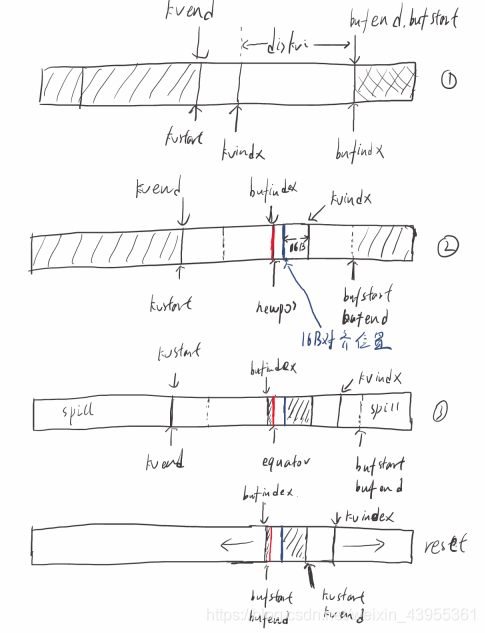 kvend
bufend,bufstart
distkvi
①
kvstart
kvindx
bufindx
kvend
bufindex
kvindx
16B
②
kvstart
newpos
bufstart
bufend
16B对齐位置
kvstart
bufindex
kvindx
spill
spill
③
kvend
equator
bufstart
bufend
bufindex.
kvindex
reset
bufstart
bufend
kvstart
kvend
https://blog.csdn.net/weixin_43955361